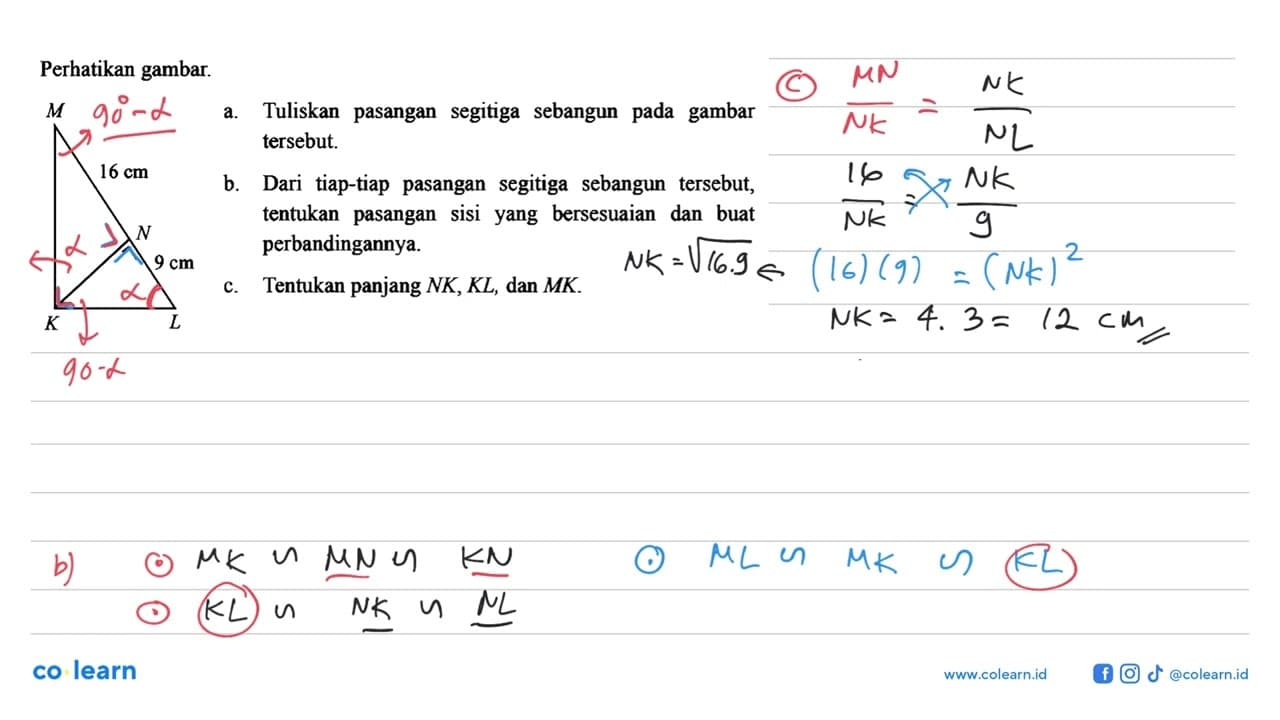 Perhatikan gambar.
M 90°-α
16 cm
N
α
9 cm
α
K L
90-α
a. Tuliskan pasangan segitiga sebangun pada gambar
tersebut.
b. Dari tiap-tiap pasangan segitiga sebangun tersebut,
tentukan pasangan sisi yang bersesuaian dan buat
perbandingannya.
c. Tentukan panjang NK, KL, dan MK.
c MN/NK = NK/NL
16/NK = NK/9
NK = √16.9 ← (16)(9) = (NK)²
NK = 4. 3 = 12 cm
b) ⊙ MK ∽ MN ∽ KN ⊙ ML ∽ MK ∽ KL
⊙ KL ∽ NK ∽ NL
co learn
www.colearn.id @colearn.id